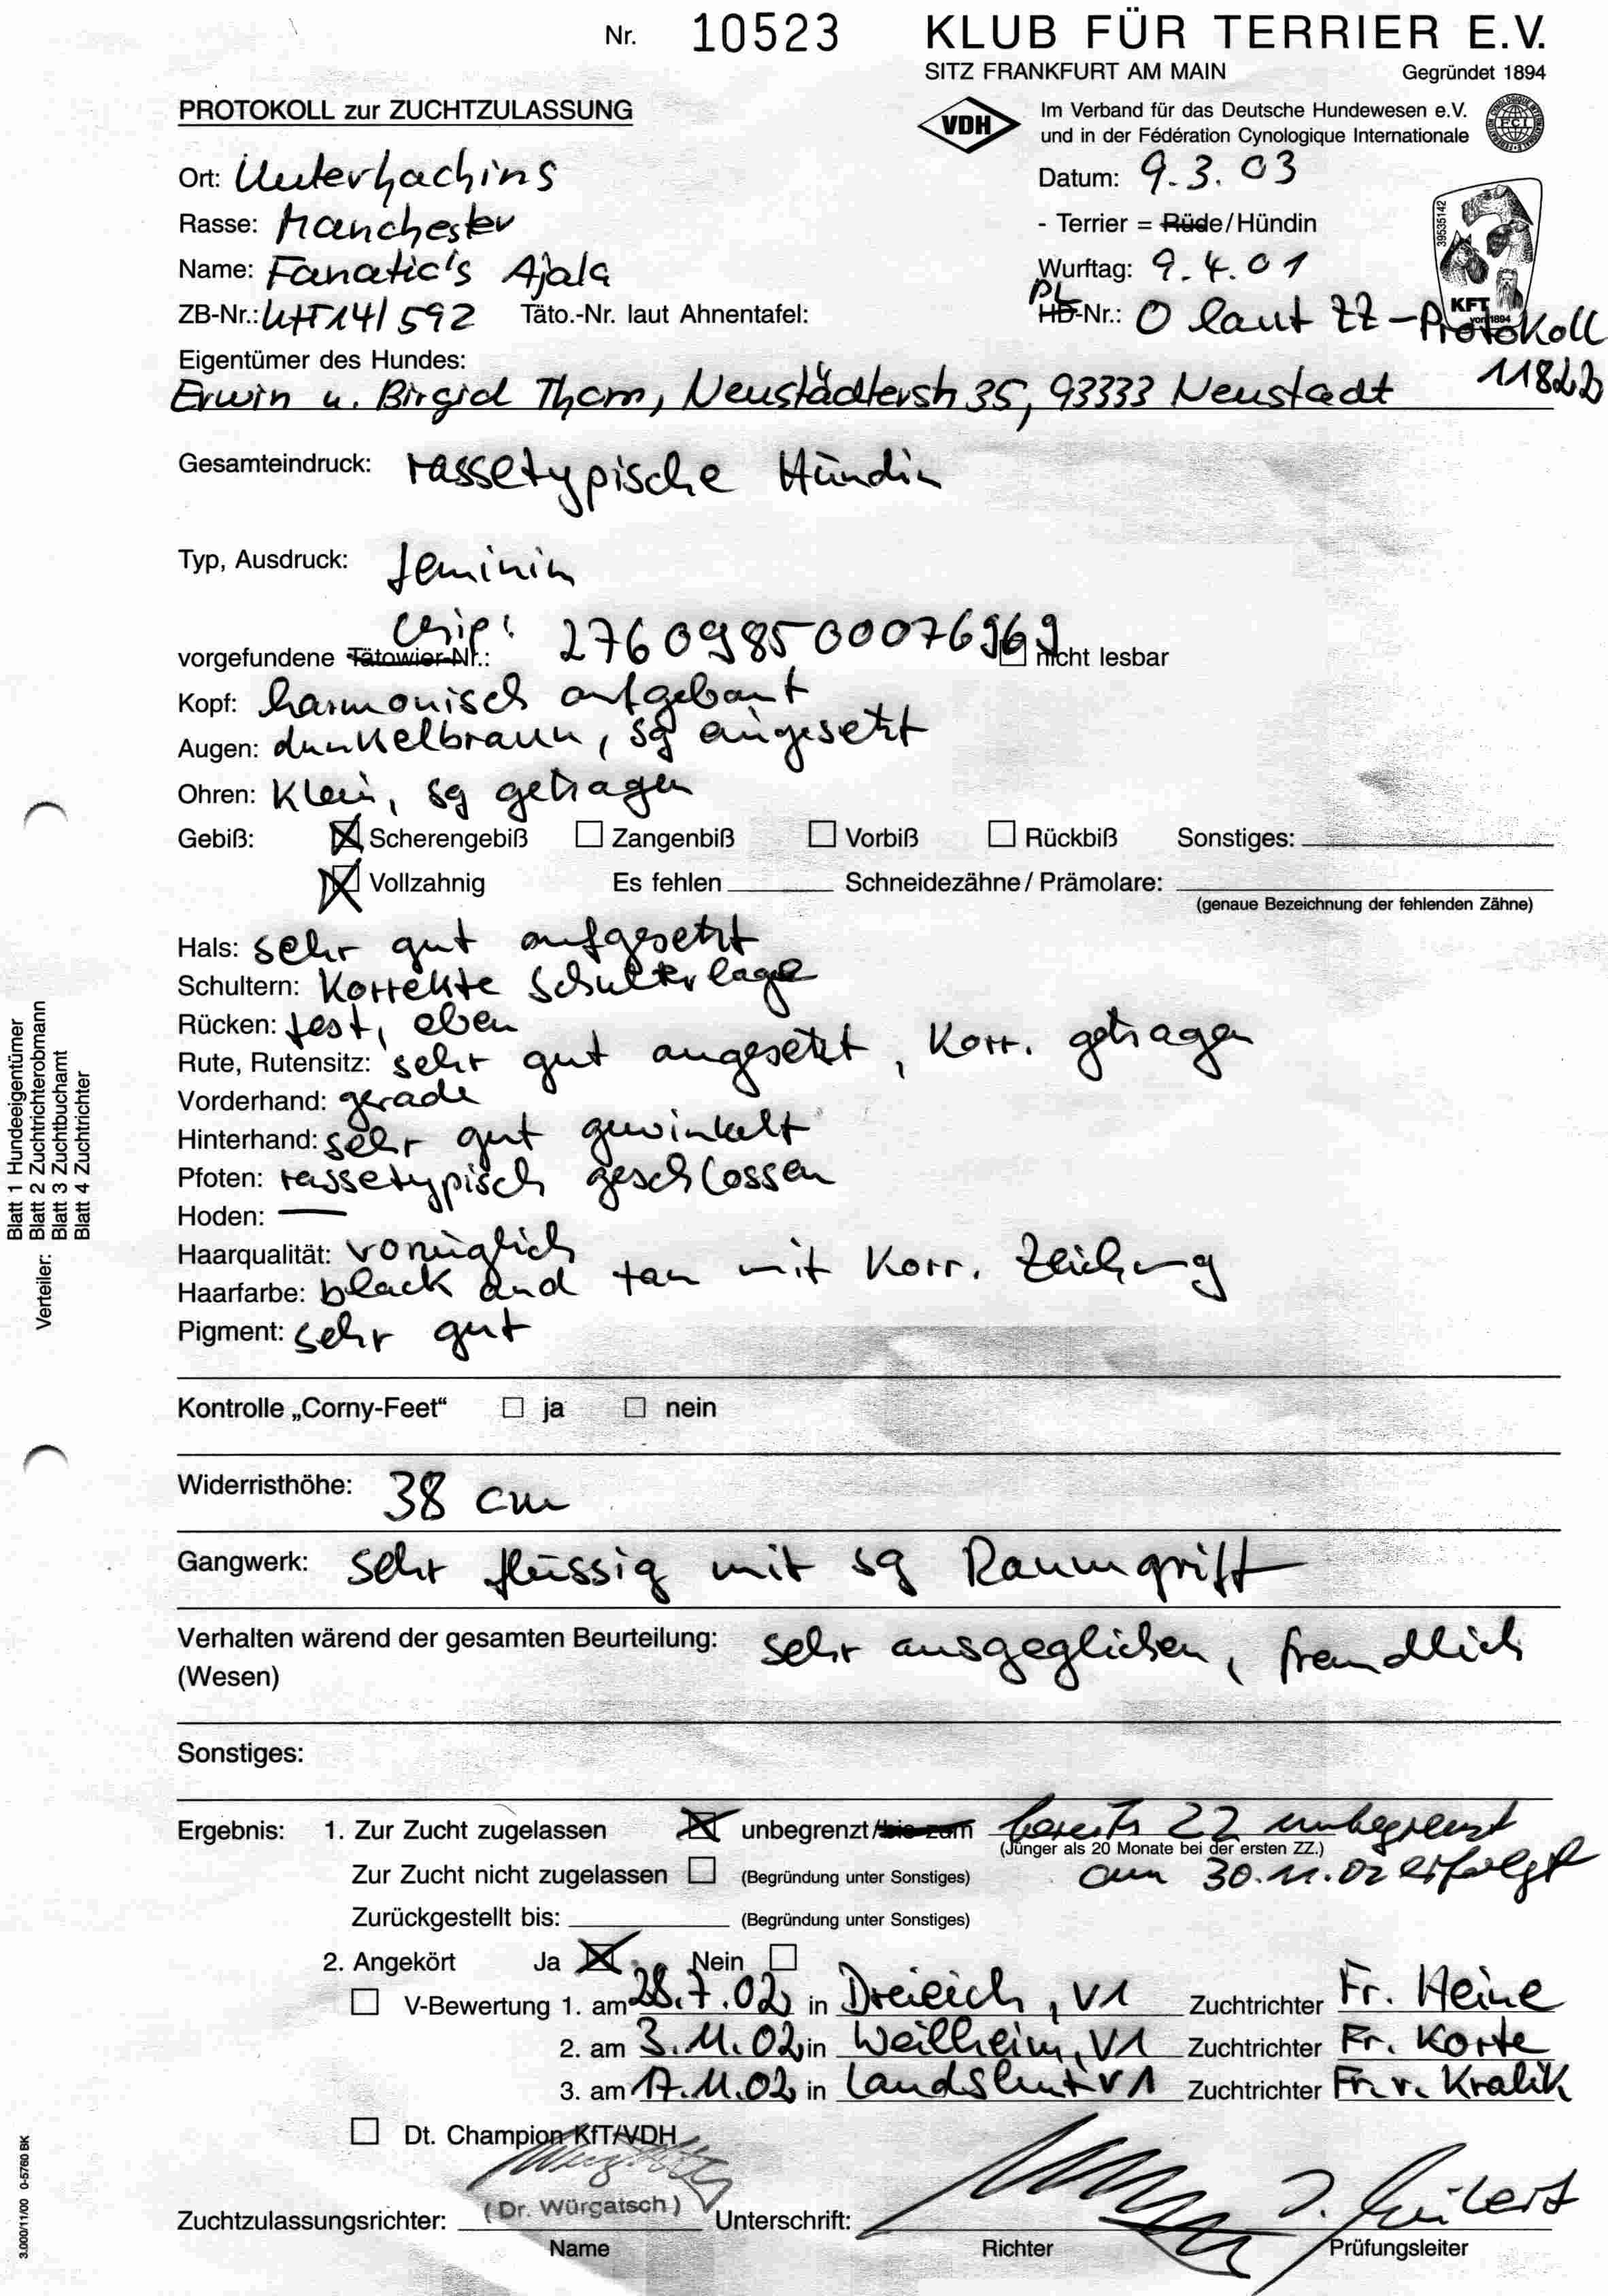 Nr. 10523
KLUB FÜR TERRIER E.V.
SITZ FRANKFURT AM MAIN Gegründet 1894
PROTOKOLL zur ZUCHTZULASSUNG
VDH Im Verband für das Deutsche Hundewesen e.V.
und in der Fédération Cynologique Internationale
FCI
Ort: Unterhaching Datum: 9.3.03
Rasse: Manchester - Terrier = Rüde/Hündin
Name: Fanatic's Ajala Wurftag: 9.4.01
39535142
KFT
von 1894
ZB-Nr.: KFT 141592 Täto.-Nr. laut Ahnentafel: PL HD-Nr.: 0 laut ZZ-Protokoll
11822
Eigentümer des Hundes:
Erwin u. Birgid Thom, Neustädterstr 35, 93333 Neustadt
Gesamteindruck: rassetypische Hündin
Typ, Ausdruck: feminin
Chip:
vorgefundene Tätowier-Nr.: 276098500076969 nicht lesbar
Kopf: harmonisch aufgebaut
Augen: dunkelbraun, sg eingesetzt
Ohren: Klein, sg getragen
Gebiß: Scherengebiß Zangenbiß Vorbiß Rückbiß Sonstiges:
Vollzahnig Es fehlen Schneidezähne / Prämolare:
(genaue Bezeichnung der fehlenden Zähne)
Hals: sehr gut aufgesetzt
Schultern: Korrekte Schulterlage
Rücken: fest, eben
Rute, Rutensitz: sehr gut angesetzt, Korr. getragen
Vorderhand: gerade
Hinterhand: sehr gut gewinkelt
Pfoten: rassetypisch geschlossen
Hoden: —
Haarqualität: vorzüglich
Haarfarbe: black and tan mit Korr. Zeichung
Pigment: sehr gut
Kontrolle „Corny-Feet“ ja nein
Widerristhöhe: 38 cm
Gangwerk: sehr flüssig mit sg Raumgriff
Verhalten wärend der gesamten Beurteilung: sehr ausgeglichen, freundlich
(Wesen)
Sonstiges:
Ergebnis: 1. Zur Zucht zugelassen unbegrenzt/bis zum bereits ZZ unbegrenzt
(Jünger als 20 Monate bei der ersten ZZ.)
Zur Zucht nicht zugelassen (Begründung unter Sonstiges) am 30.11.02 erfolgt
Zurückgestellt bis: (Begründung unter Sonstiges)
2. Angekört Ja Nein
V-Bewertung 1. am 28.7.02 in Dreieich, V1 Zuchtrichter Fr. Heine
2. am 3.11.02 in Weilheim, V1 Zuchtrichter Fr. Korte
3. am 17.11.02 in Landshut V1 Zuchtrichter Fr. v. Kralik
Dt. Champion KfT/VDH
Zuchtzulassungsrichter: (Dr. Würgatsch) Unterschrift:
Name Richter Prüfungsleiter
Verteiler: Blatt 1 Hundeeigentümer
Blatt 2 Zuchtrichterobmann
Blatt 3 Zuchtbuchamt
Blatt 4 Zuchtrichter
3.000/11/00 0-5760 BK